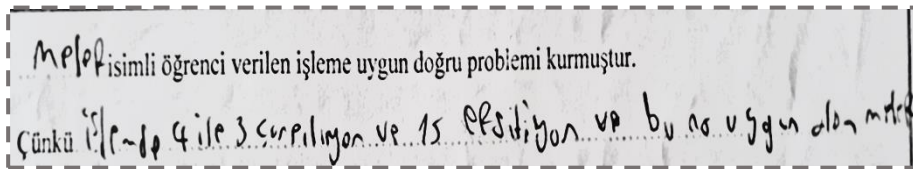 Melef isimli öğrenci verilen işleme uygun doğru problemi kurmuştur.
Çünkü işlemde 4 ile 3 çarpılıyor ve 15 eksiliyor ve buna uygun olan